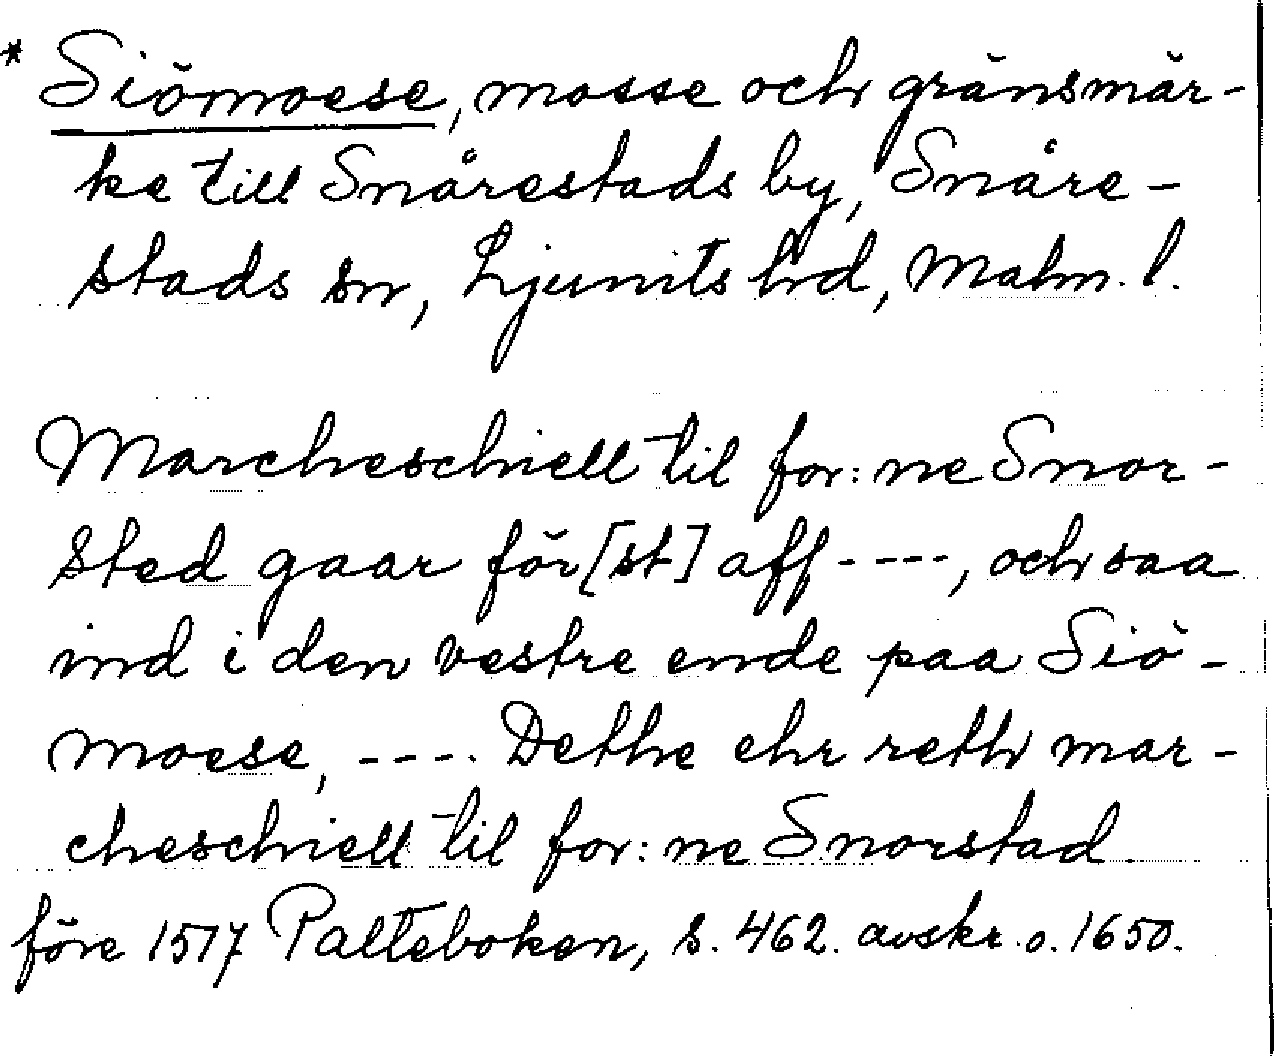 * Siömoese, mosse och gränsmär-
ke till Snårestads by, Snåre-
stads sn, Ljunits hd, Malm. l.
Marcheschiell til for: ne Snor-
sted gaar för[st] aff ----, och saa
ind i den vestre ende paa Siö-
moese, ----. Dethe ehr reth mar-
cheschiell til for: ne Snorstad
före 1517 Palteboken, s. 462. avskr. o. 1650.